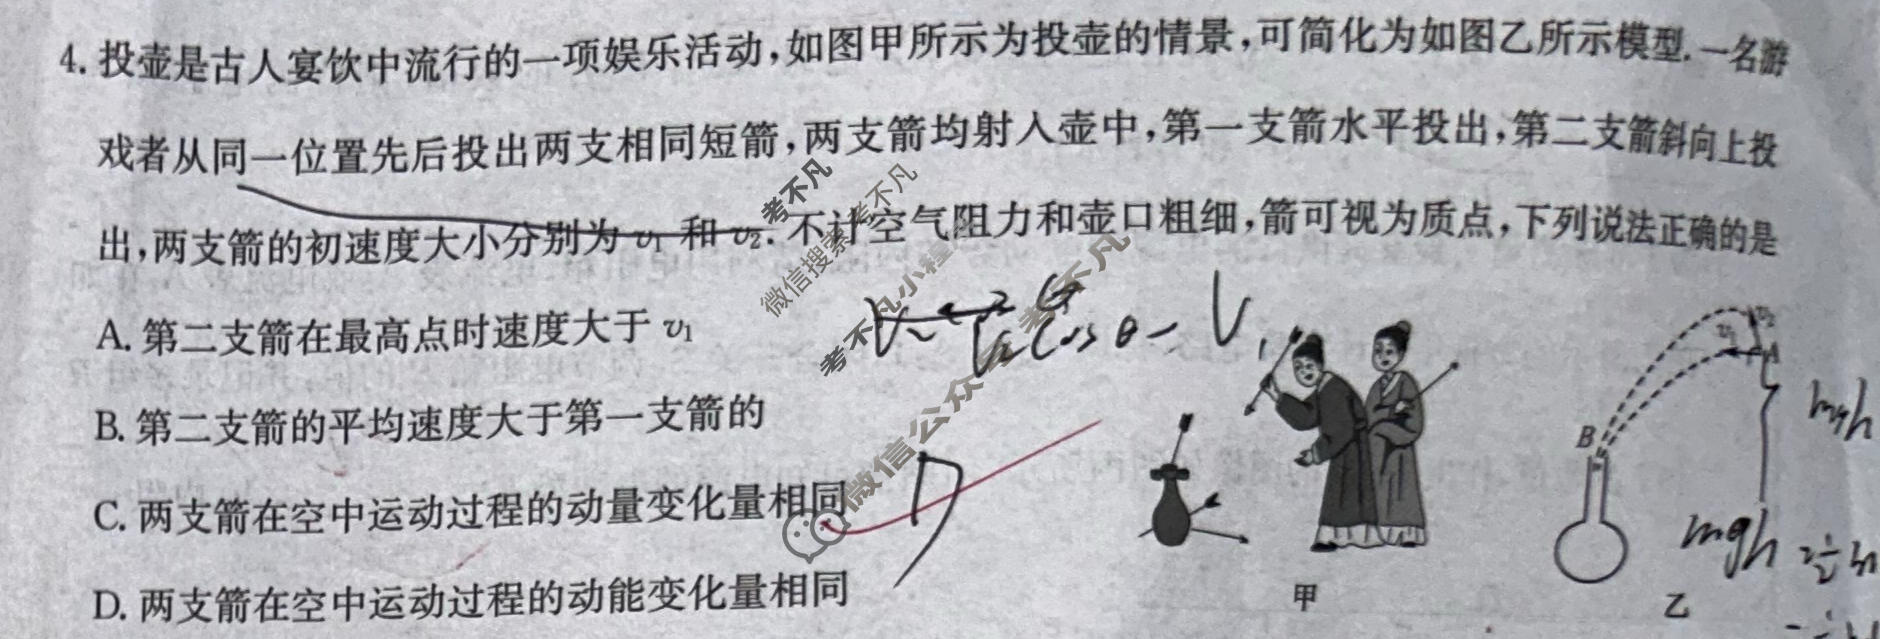 4. 投壶是古人宴饮中流行的一项娱乐活动,如图甲所示为投壶的情景,可简化为如图乙所示模型.一名游
戏者从同一位置先后投出两支相同短箭,两支箭均射入壶中,第一支箭水平投出,第二支箭斜向上投
出,两支箭的初速度大小分别为 v₁ 和 v₂. 不计空气阻力和壶口粗细,箭可视为质点,下列说法正确的是
A. 第二支箭在最高点时速度大于 v₁
B. 第二支箭的平均速度大于第一支箭的
C. 两支箭在空中运动过程的动量变化量相同
D. 两支箭在空中运动过程的动能变化量相同
cosθ
D
考不凡
考不凡
微信搜索
考不凡小程
微信公众
考不凡
v₂
v₁
A
B
mgh
mgh
甲
乙